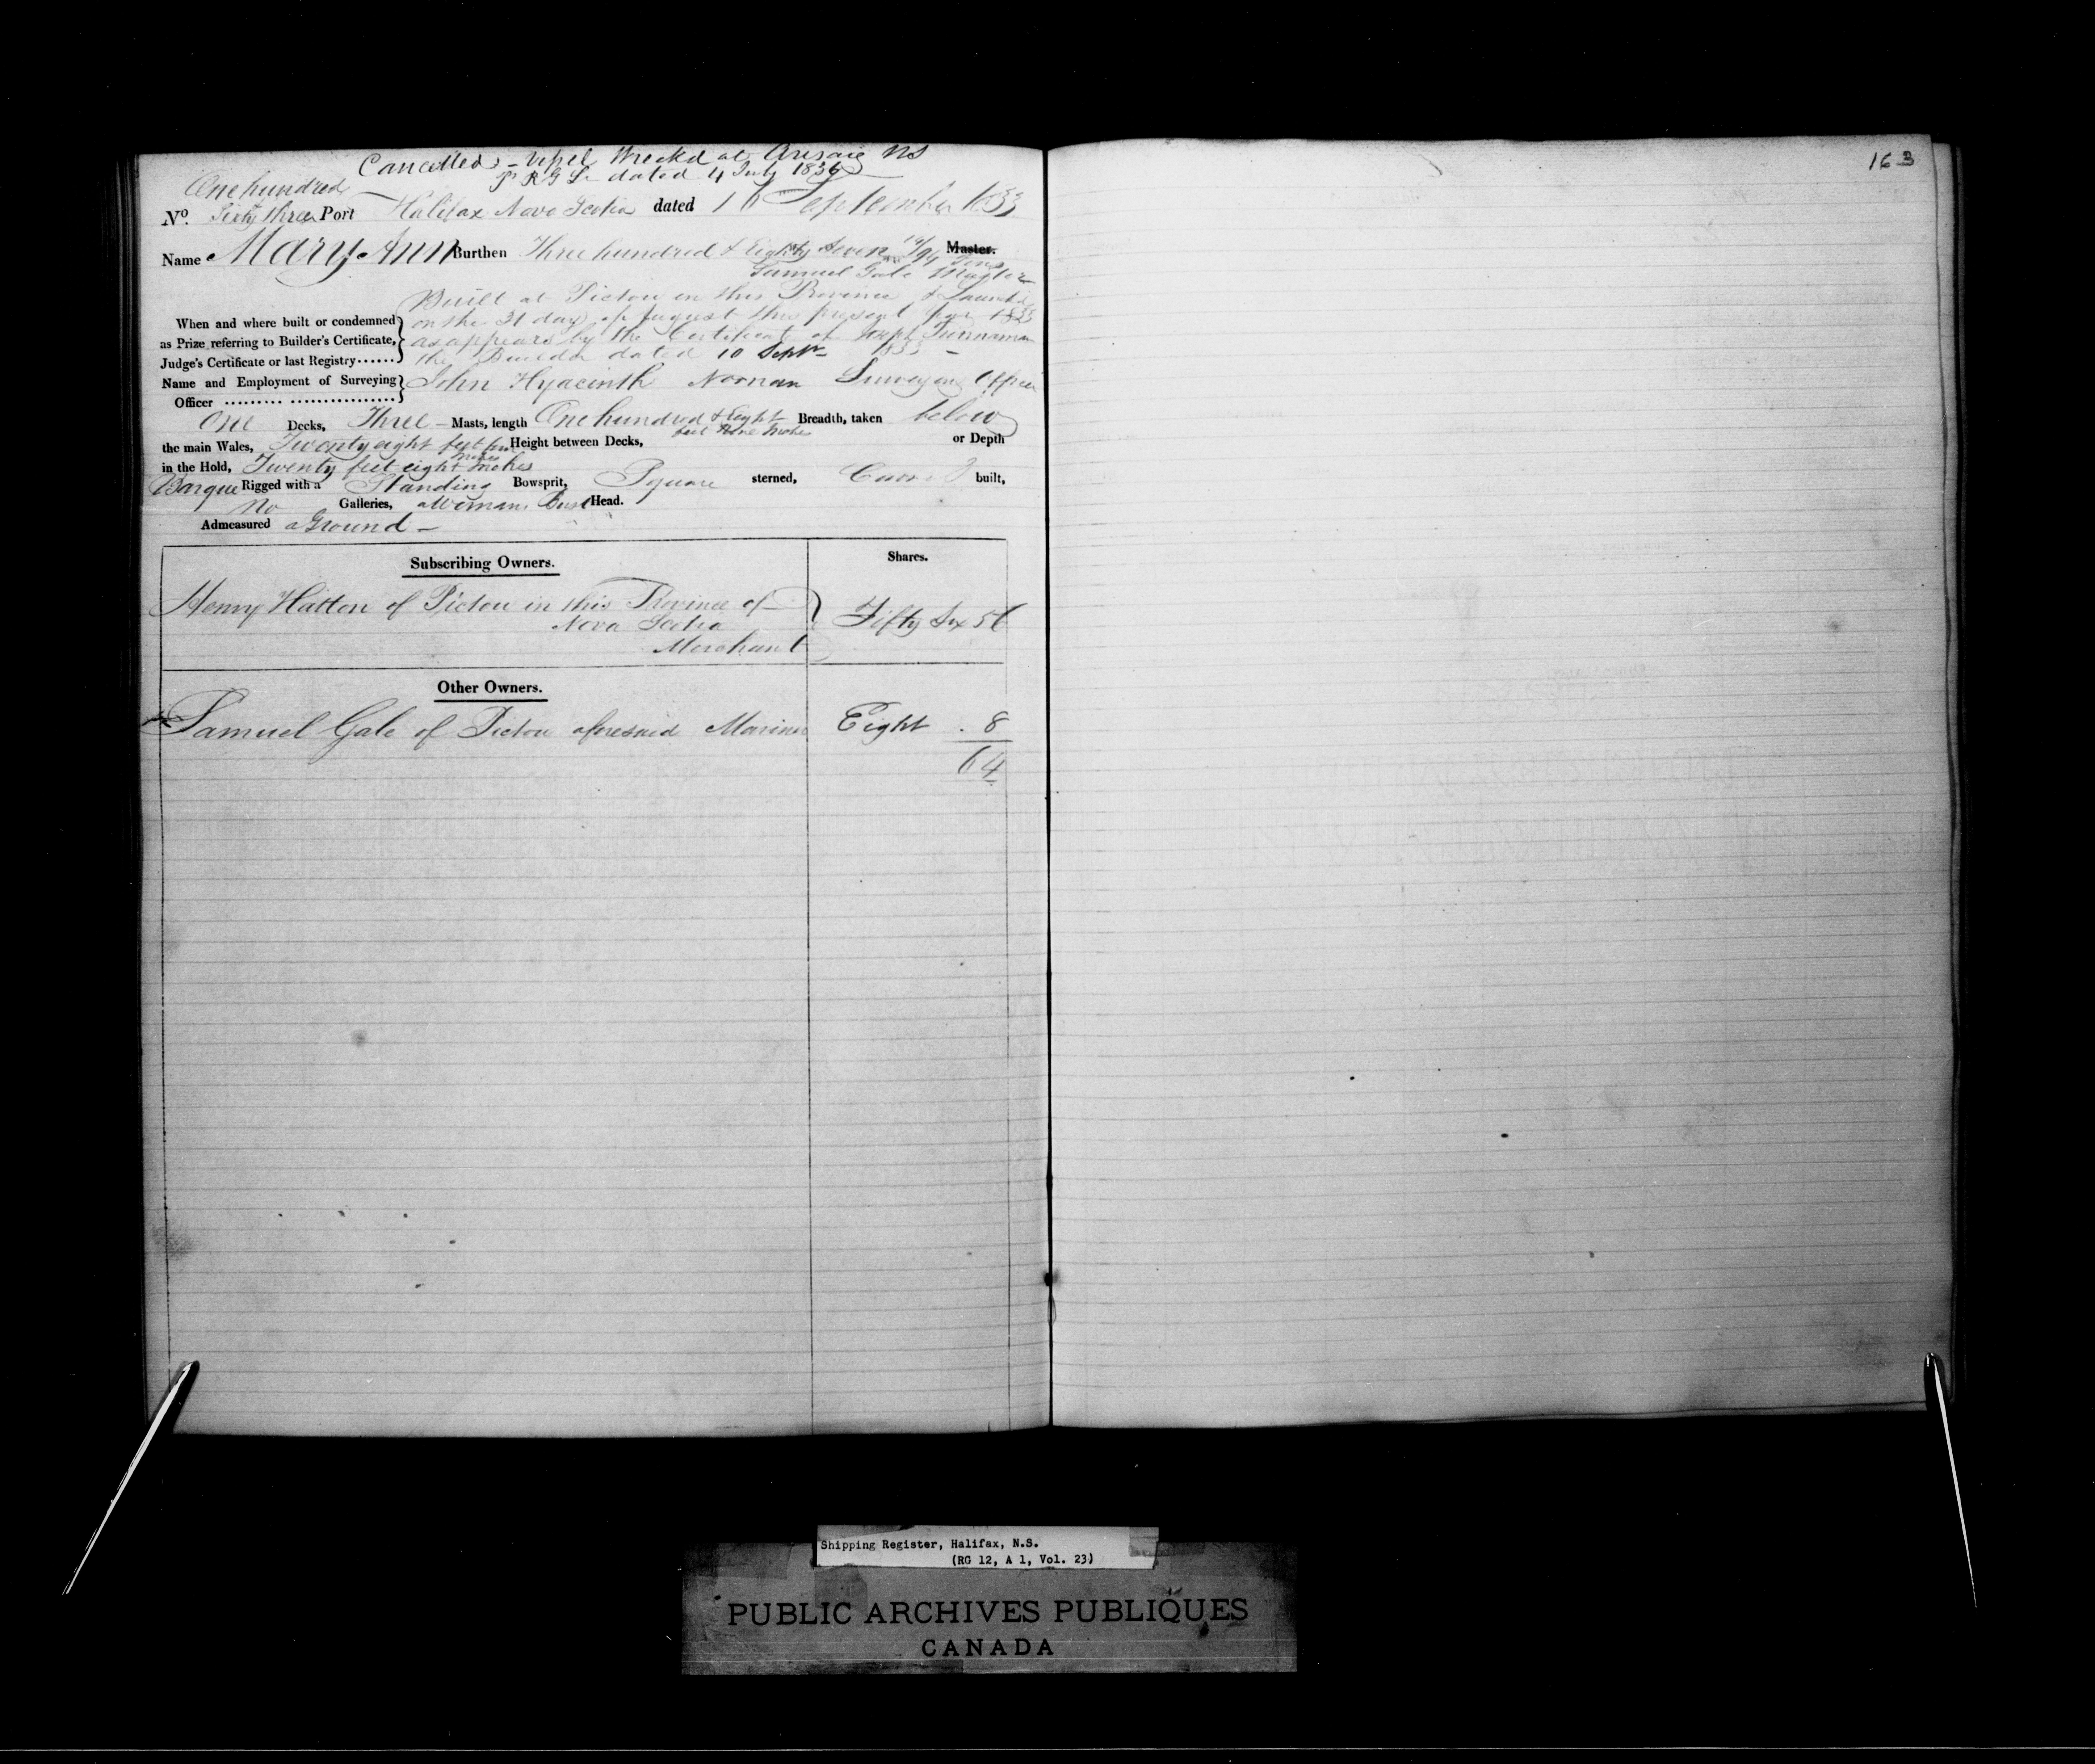 Cancelled - Vessel Wreckd at Arisaig NS
pr R G L dated 4 July 1836
One hundred
No. Sixty three Port Halifax Nova Scotia dated 16 September 1833
Name Mary Ann Burthen Three hundred & Eighty Seven /94 Tons Master.
Samuel Gale Master
Built at Pictou in this Province & Launchd
When and where built or condemned on the 31 day of August this present year 1833
as Prize referring to Builder's Certificate, as appears by the Certificate of Joseph
Judge's Certificate or last Registry...... the Builder dated 10 Septr 1833 -
Name and Employment of Surveying John Hyacinth Norman Surveying Officer
Officer ......... ................
One Decks, Three - Masts, length One hundred & Eight Breadth, taken below
feet Nine Inches
the main Wales, Twenty eight feet Height between Decks, or Depth
Inches
in the Hold, Twenty feet eight Inches
Barque Rigged with a Standing Bowsprit, Square sterned, built,
No Galleries, a Womans Bust Head.
Admeasured a Ground -
Subscribing Owners.
Shares.
Henry Hatton of Pictou in this Province of
Nova Scotia
Merchant
Fifty Six 56
Other Owners.
Samuel Gale of Pictou aforesaid Mariner Eight . 8
64
163
Shipping Register, Halifax, N.S.
(RG 12, A 1, Vol. 23)
PUBLIC ARCHIVES PUBLIQUES
CANADA